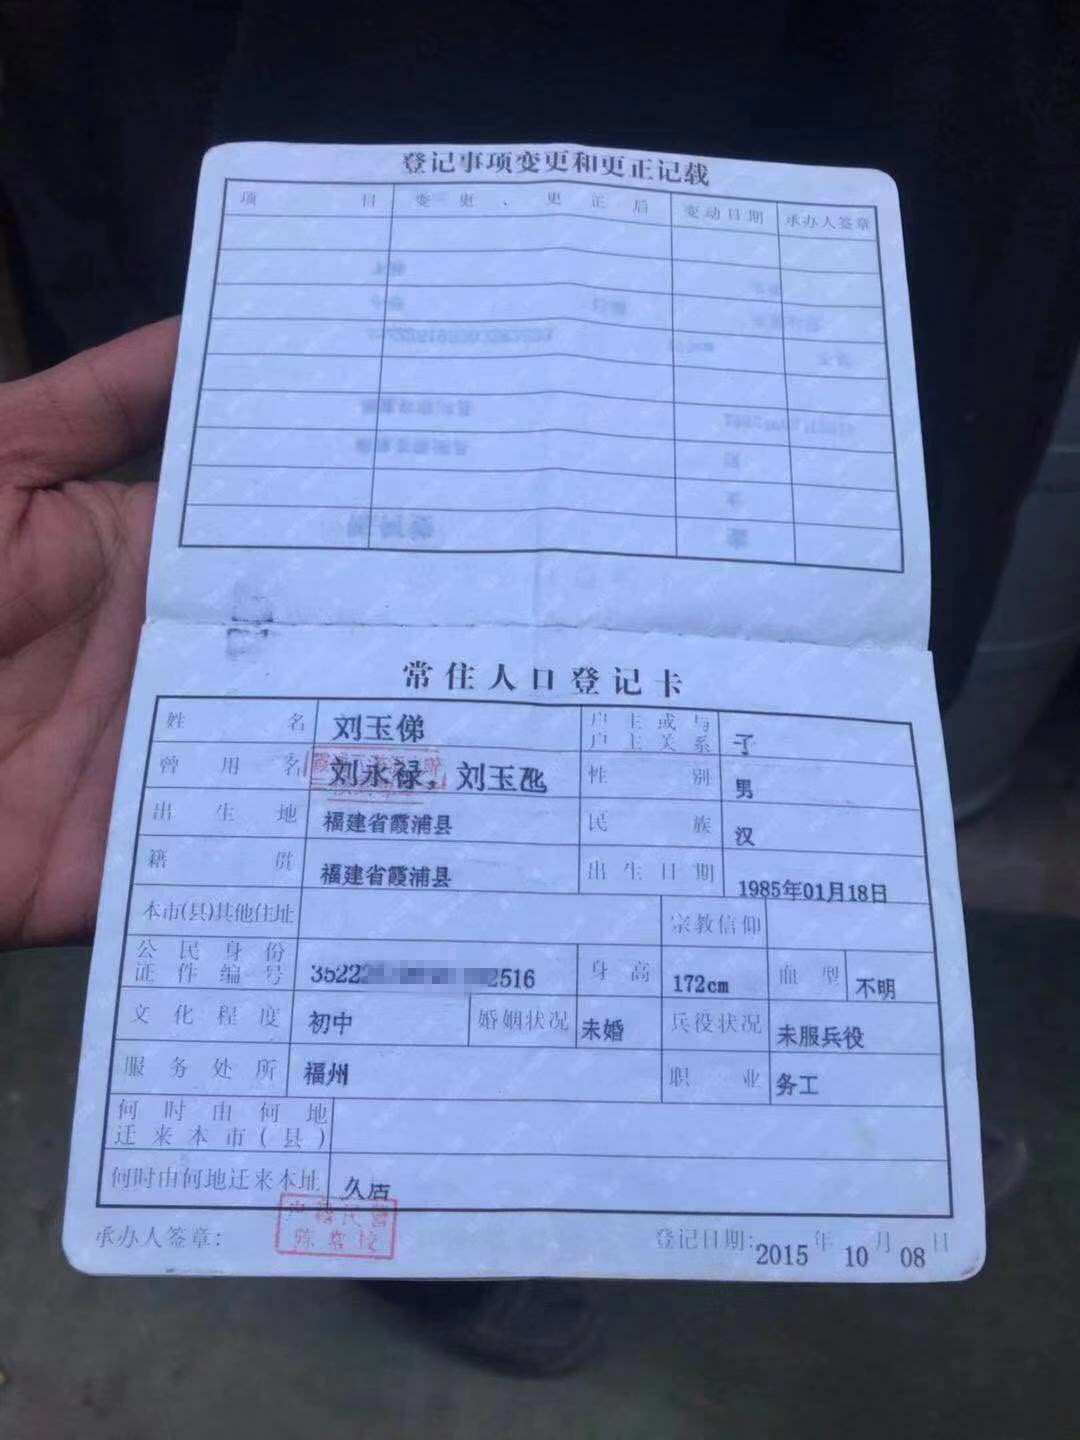 登记事项变更和更正记载
项 目 变 更 、 更 正 后 变动日期 承办人签章
常住人口登记卡
姓 名 刘玉俤 户主或与户主关系 子
曾 用 名 刘永禄，刘玉 性 别 男
出 生 地 福建省霞浦县 民 族 汉
籍 贯 福建省霞浦县 出生日期 1985年01月18日
本市(县)其他住址 宗教信仰
公民身份证件编号 35222 2516 身高 172cm 血型 不明
文化程度 初中 婚姻状况 未婚 兵役状况 未服兵役
服务处所 福州 职 业 务工
何时由何地迁来本市(县)
何时由何地迁来本址 久居
承办人签章: 登记日期: 2015 年 10 月 08 日